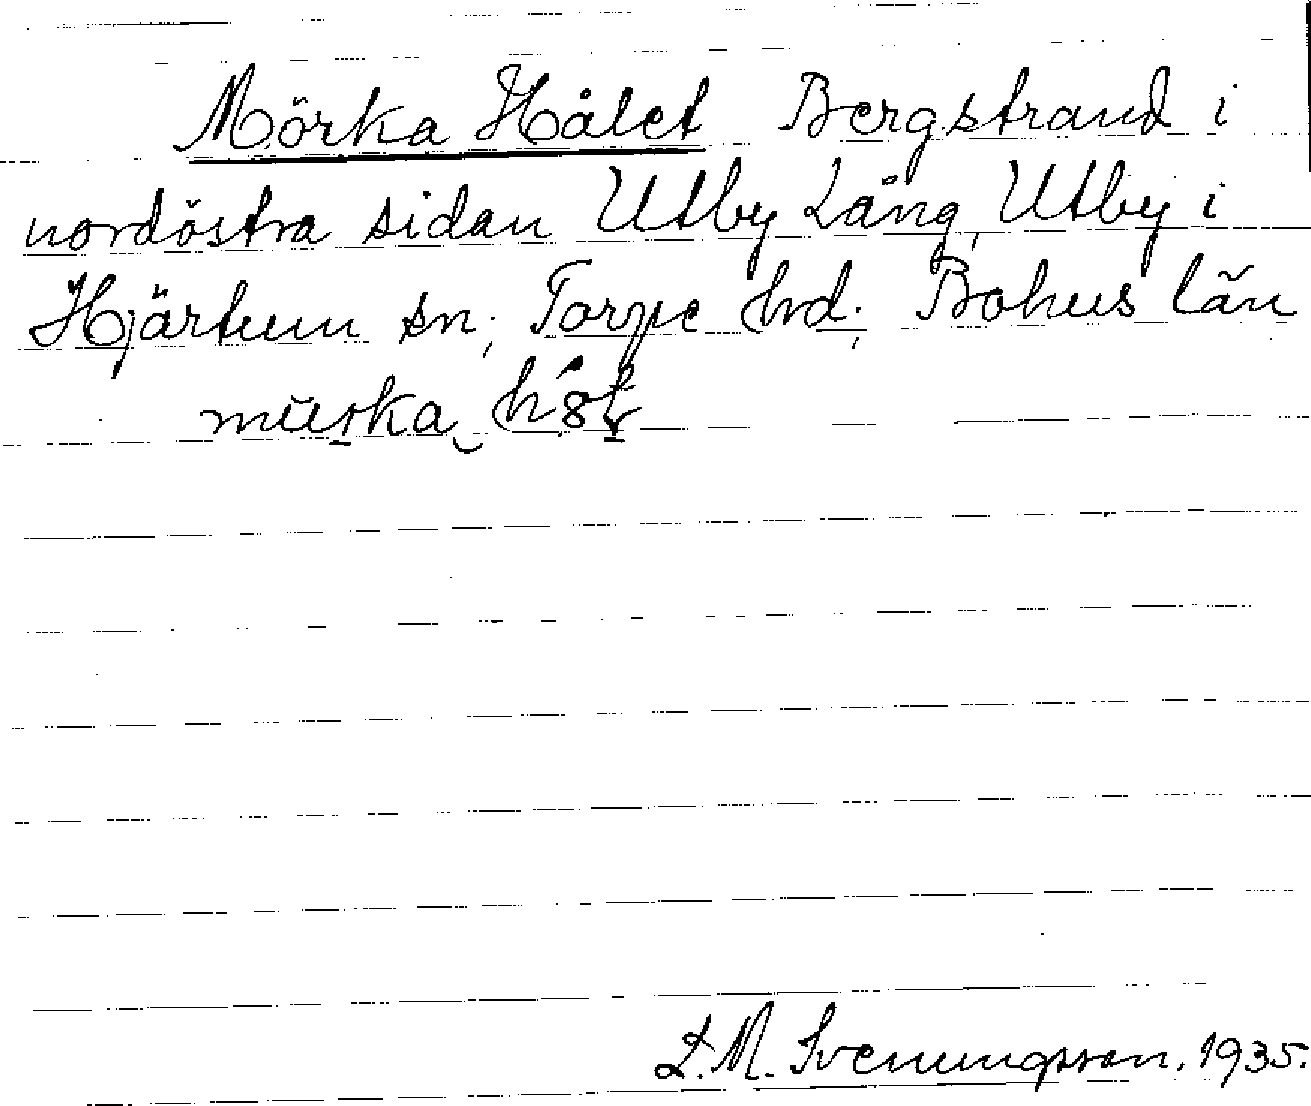 Mörka Hålet Bergstrand i
nordöstra sidan Utby Lång, Utby i
Hjärtum sn, Torpe hrd, Bohus län
L.M. Svenungsson. 1935.